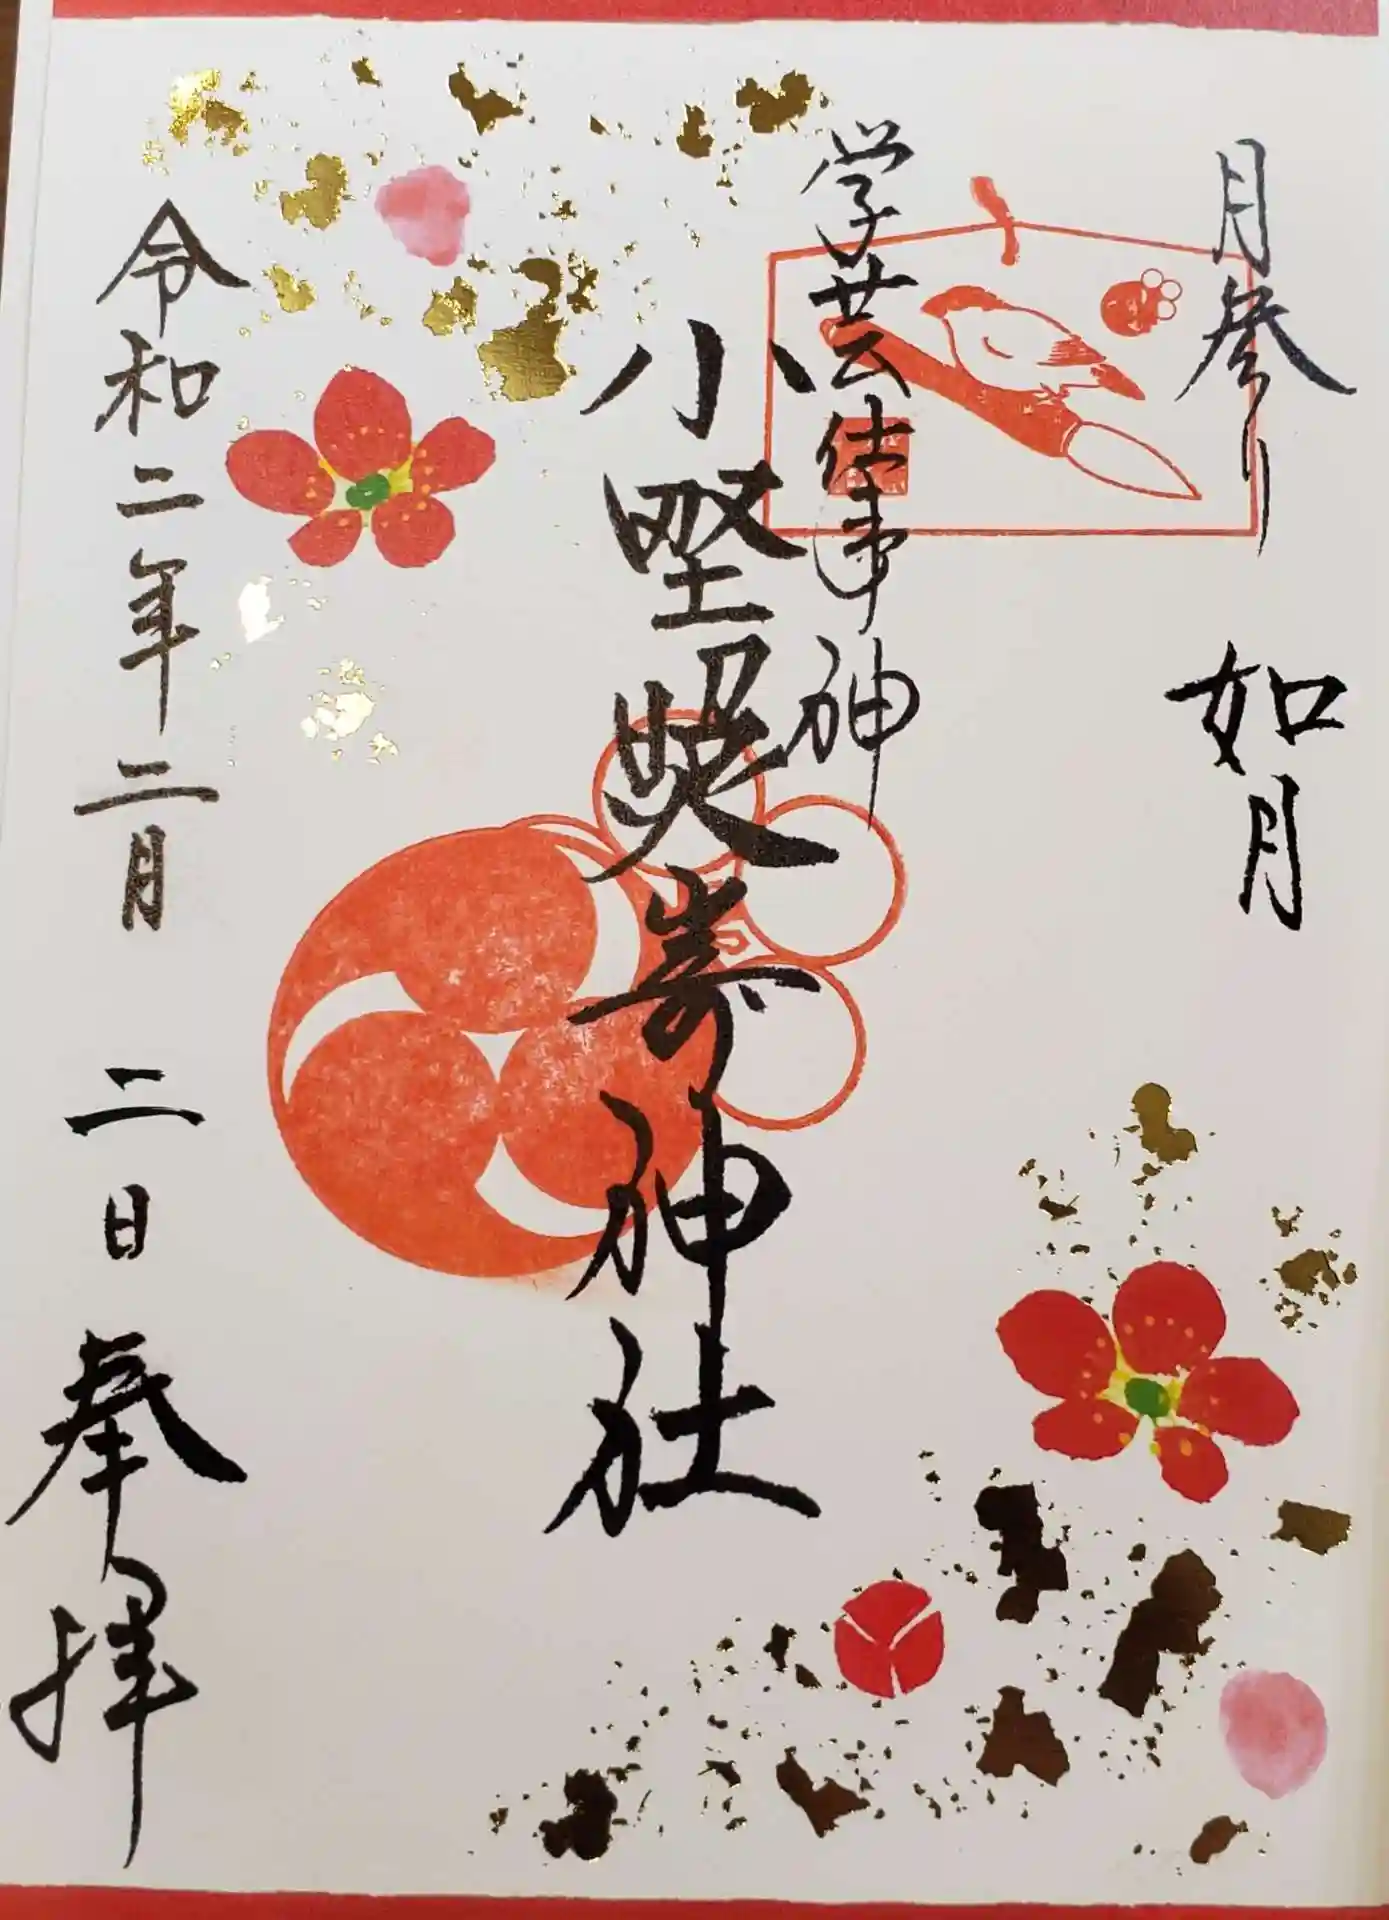 月参り 如月
学芸仕事神
小野照崎神社
令和二年二月 二日 奉拝